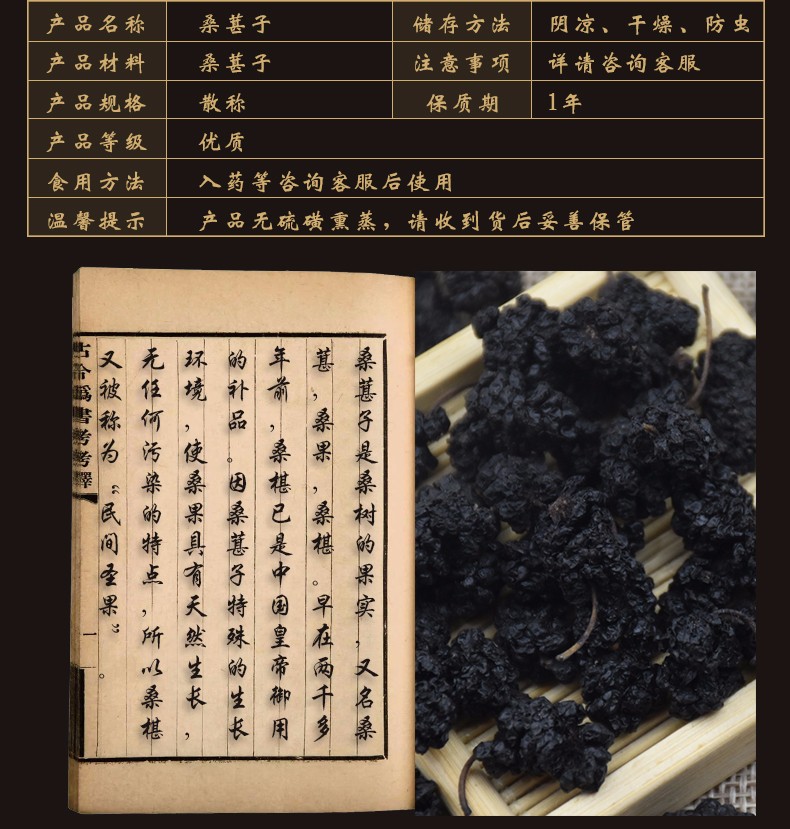 产品名称 桑葚子 储存方法 阴凉、干燥、防虫
产品材料 桑葚子 注意事项 详请咨询客服
产品规格 散称 保质期 1年
产品等级 优质
食用方法 入药等咨询客服后使用
温馨提示 产品无硫磺熏蒸，请收到货后妥善保管
桑葚子是桑树的果实，又名桑
葚，桑果，桑椹。早在两千多
年前，桑椹已是中国皇帝御用
的补品。因桑葚子特殊的生长
环境，使桑果具有天然生长，
无任何污染的特点，所以桑椹
又被称为“民间圣果”。
书考考释
一